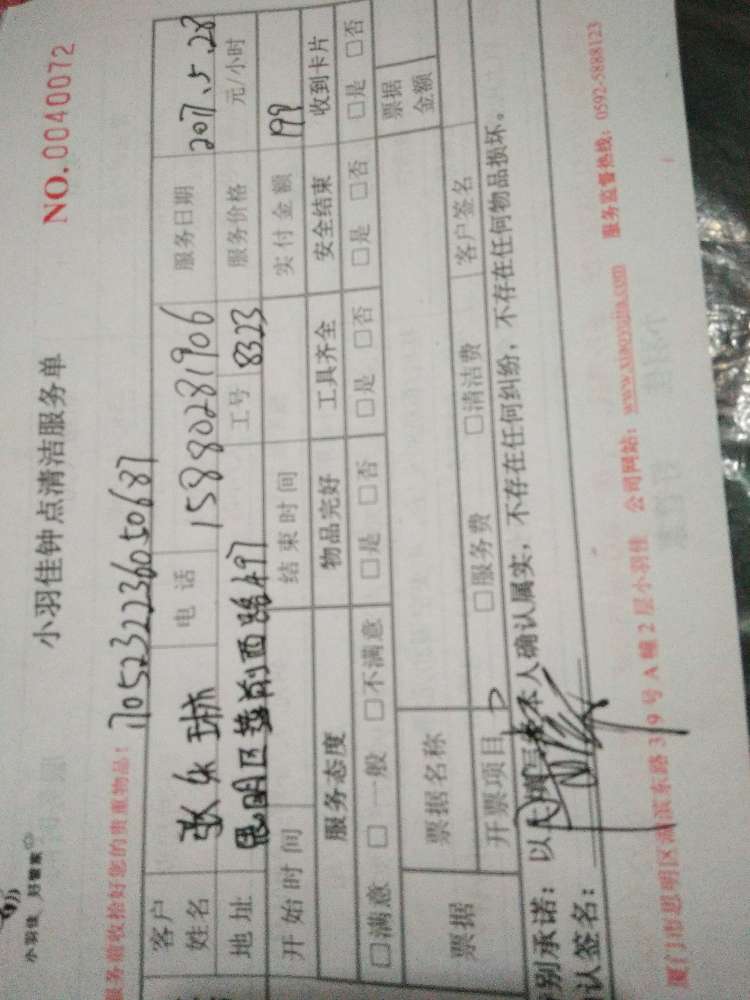 小羽佳 好管家
小羽佳钟点清洁服务单
NO.0040072
服务前收拾好您的贵重物品！
1705232236050687
客户姓名 张乐琳 电话 15880281906 服务日期 2017.5.28
地址 思明区 前西路497 工号 8323 服务价格 元/小时
开始时间 结束时间 实付金额 199
服务态度 物品完好 工具齐全 安全结束 收到卡片
□满意 □一般 □不满意 □是 □否 □是 □否 □是 □否 □是 □否
票据 票据名称 票据金额
开票项目 □服务费 □清洁费 客户签名
别承诺：以上 本人确认属实，不存在任何纠纷，不存在任何物品损坏。
认签名：
厦门市思明区湖滨东路319号A幢2层小羽佳 公司网站：www.xiaoyujia.com 服务监督热线：0592-5888123